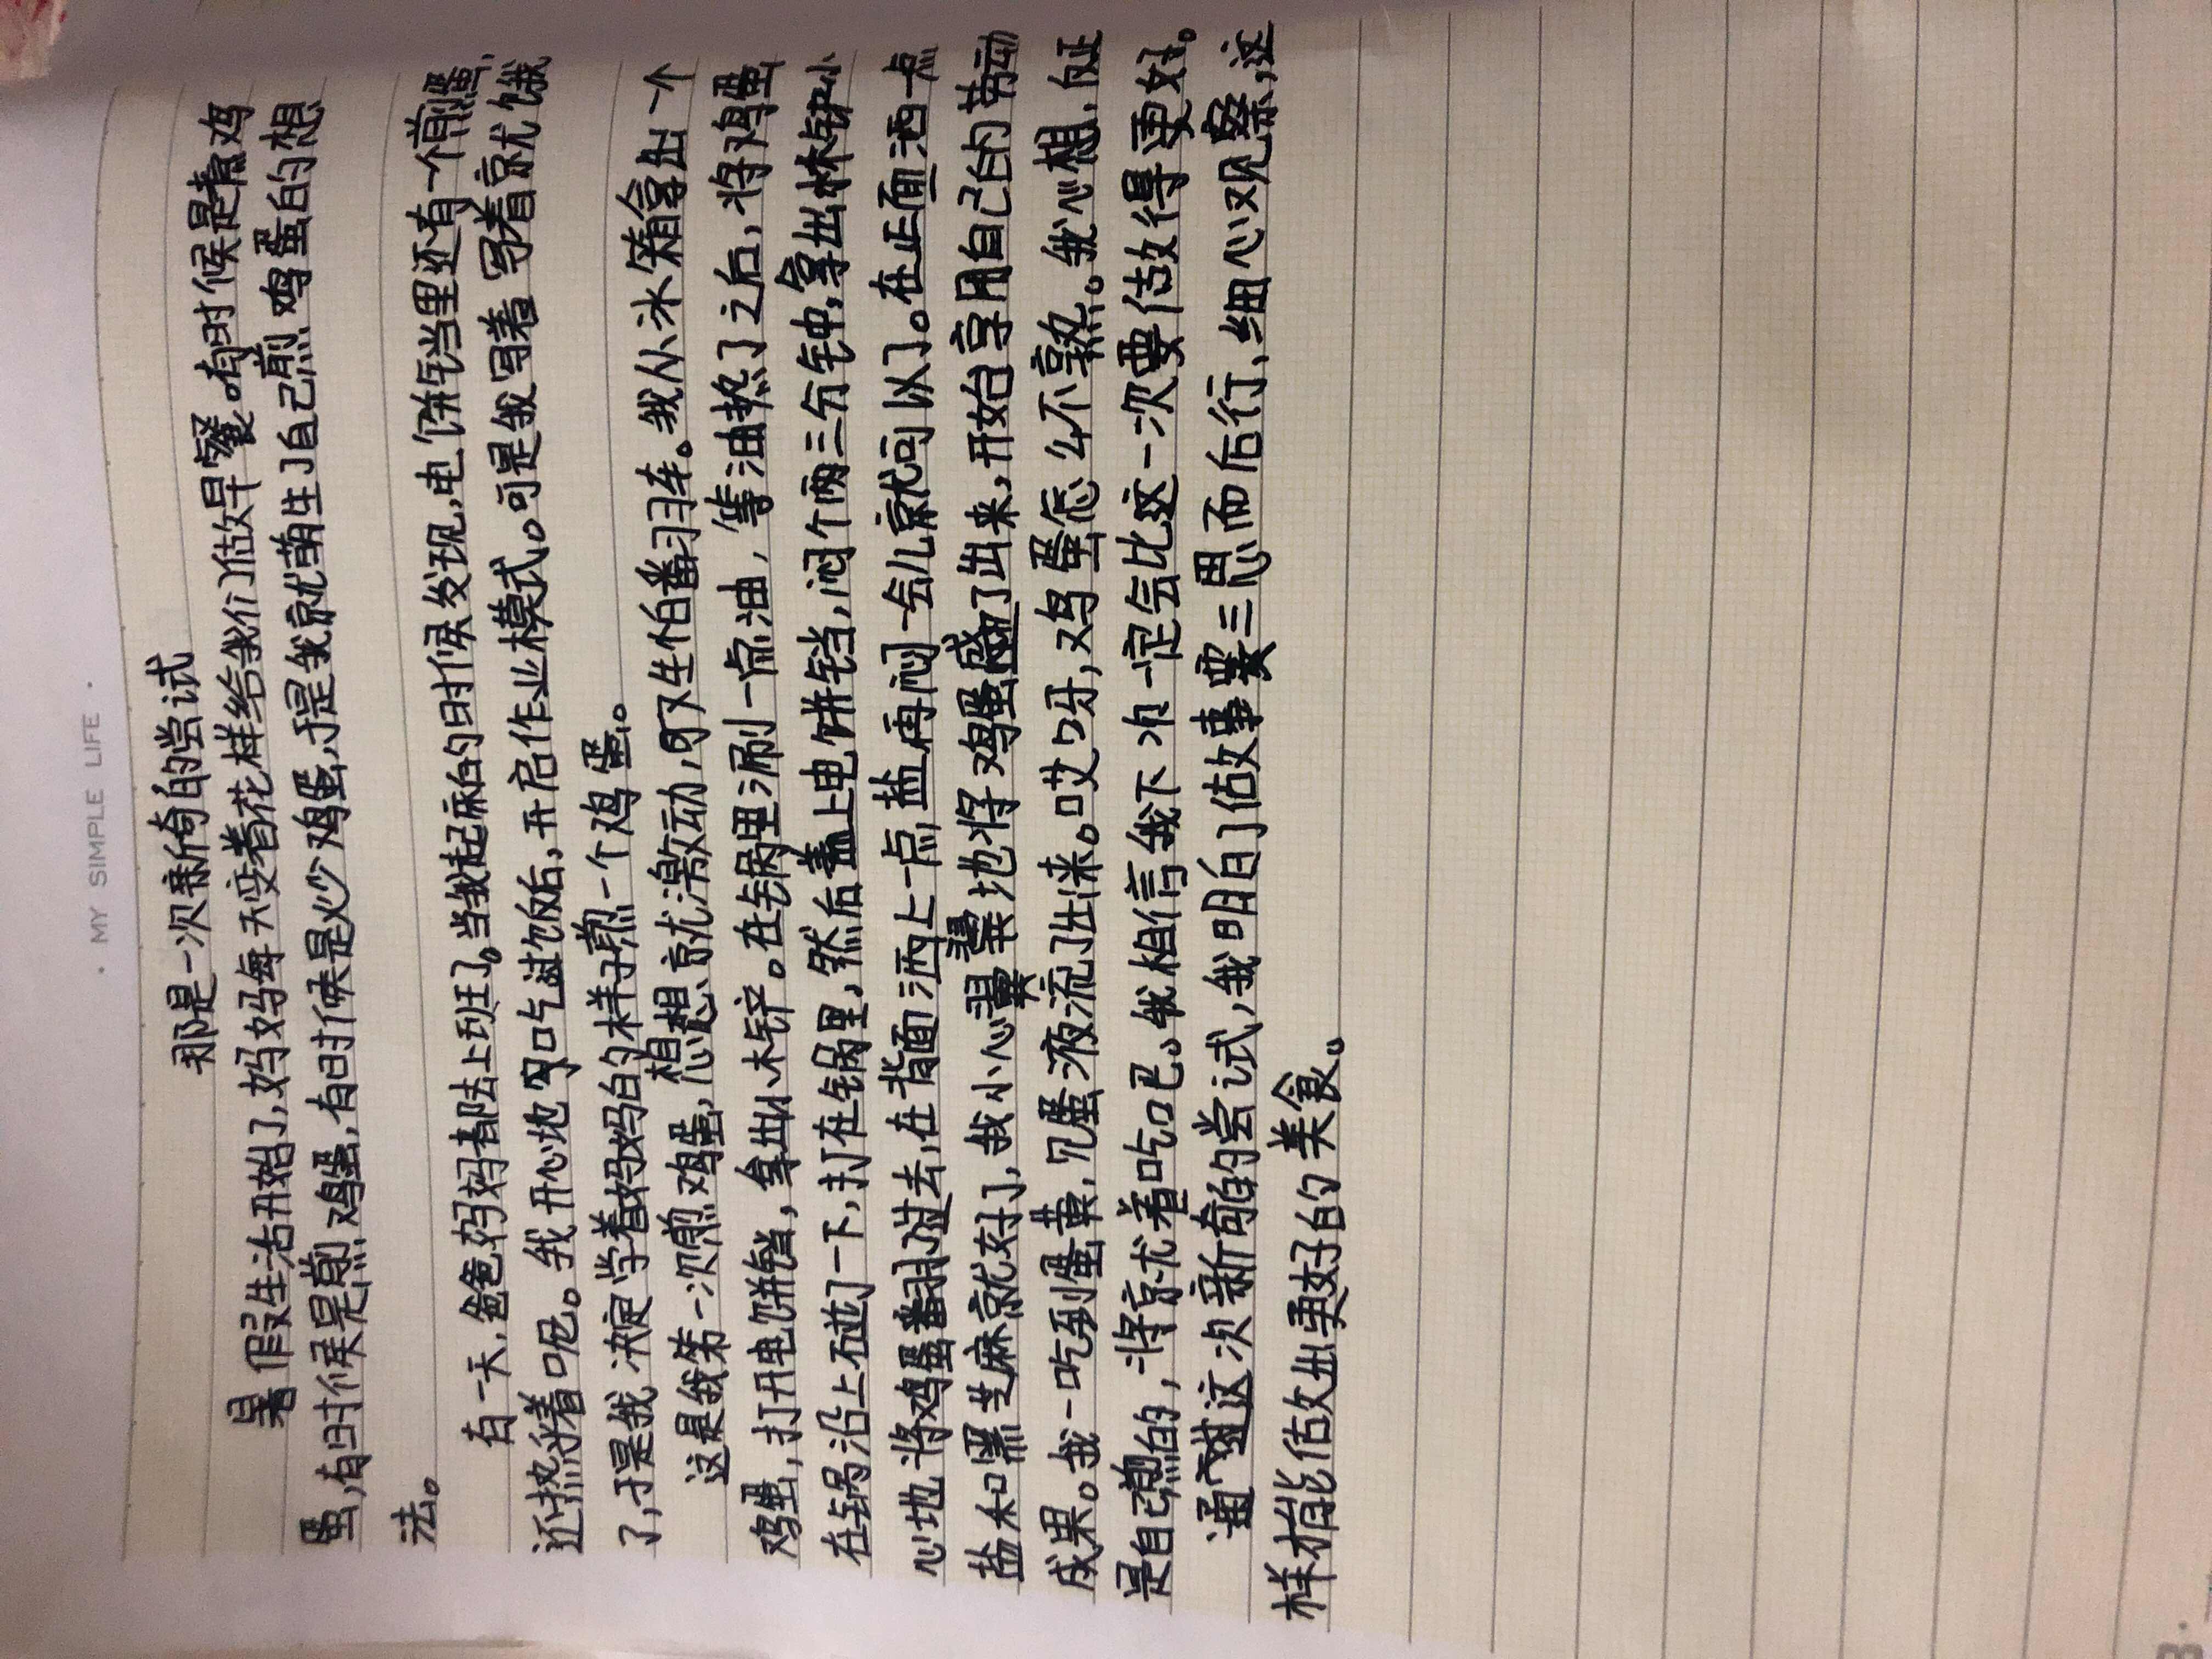 · MY SIMPLE LIFE ·
那是一次新奇的尝试
暑假生活开始了,妈妈每天变着花样给我们做早餐。有时候是煮鸡
蛋,有时候是煎鸡蛋,有时候是炒鸡蛋,于是我就萌生了自己煎鸡蛋的想
法。
有一天,爸爸妈妈都去上班了。当我起床的时候发现,电饼铛里还有一个煎蛋,
还热乎着呢。我开心地吃过饭后,开启作业模式。可是我写着写着就饿
了,于是我决定学着妈妈的样子煎一个鸡蛋。
这是我第一次煎鸡蛋,想想就激动,但又生怕翻车。我从冰箱拿出一个
鸡蛋,打开电饼铛,拿出小木铲。在锅里涮一点油,等油热了之后,将鸡蛋
在锅沿上碰了一下,打在锅里,然后盖上电饼铛,闷个俩三分钟,拿出木铲小
心地将鸡蛋翻过去,在背面洒上一点盐再闷一会儿就可以了。在正面洒点
盐和黑芝麻就好了,我小心翼翼地将鸡蛋盛了出来,开始享用自己的劳动
成果。我一吃到蛋黄,蛋液流了出来。哎呀,鸡蛋怎么不熟。我心想,反正
是自己煎的,将就着吃吧。我相信我下次一定会比这一次要做得更好。
通过这次新奇的尝试,我明白了做事要三思而后行,细心观察,这
样才能做出更好的美食。